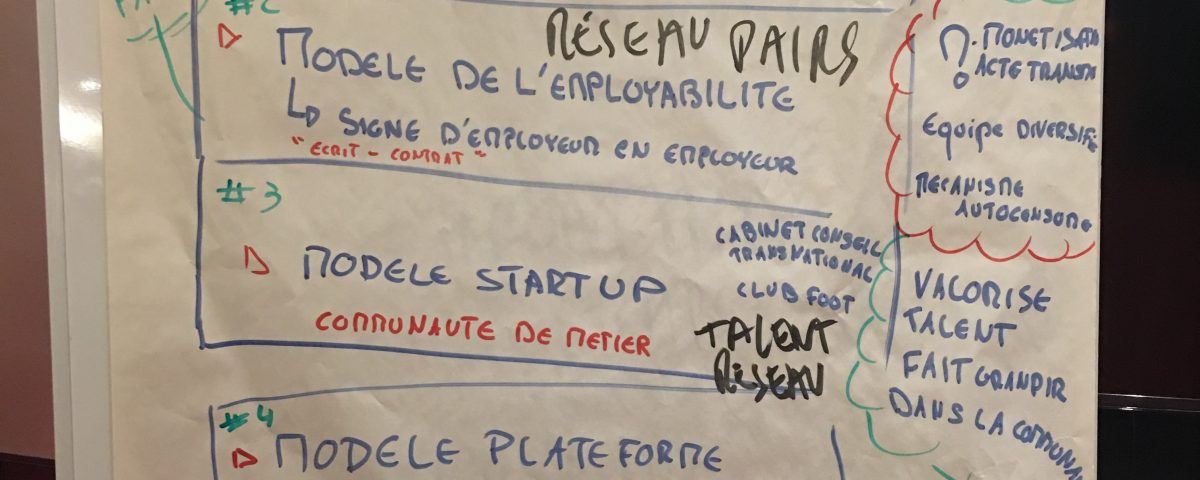 #2
RÉSEAU PAIRS
MODELE DE L'EMPLOYABILITE
↳ SIGNE D'EMPLOYEUR EN EMPLOYEUR
"ECRIT - CONTRAT"
#3
MODELE STARTUP
COMMUNAUTE DE METIER
CABINET CONSEIL
TRANSNATIONAL
CLUB FOOT
TALENT
RÉSEAU
#4
MODELE PLATEFORME
?. MONETISATI
ACTE TRANSM
Equipe DIVERSIFI
MECANISME
AUTOCONSOME
VALORISE
TALENT
FAIT GRANDIR
DANS LA COMMUNA